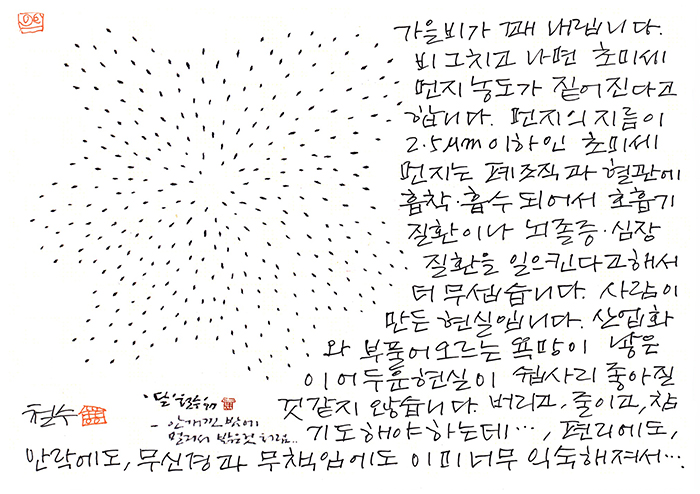 가을비가 꽤 내립니다.
비 그치고 나면 초미세
먼지 농도가 짙어진다고
합니다. 먼지의 지름이
2.5μm 이하인 초미세
먼지는 폐조직과 혈관에
흡착·흡수 되어서 호흡기
질환이나 뇌졸중·심장
질환을 일으킨다고해서
더 무섭습니다. 사람이
만든 현실입니다. 산업화
와 부풀어오르는 욕망이 낳은
이 어두운 현실이 쉽사리 좋아질
것 같지 않습니다. 버리고, 줄이고, 참
기도 해야 하는데…, 편리에도,
안락에도, 무신경과 무책임에도 이미 너무 익숙해져서….
'달' 철수
- 안개낀 밤에
철수